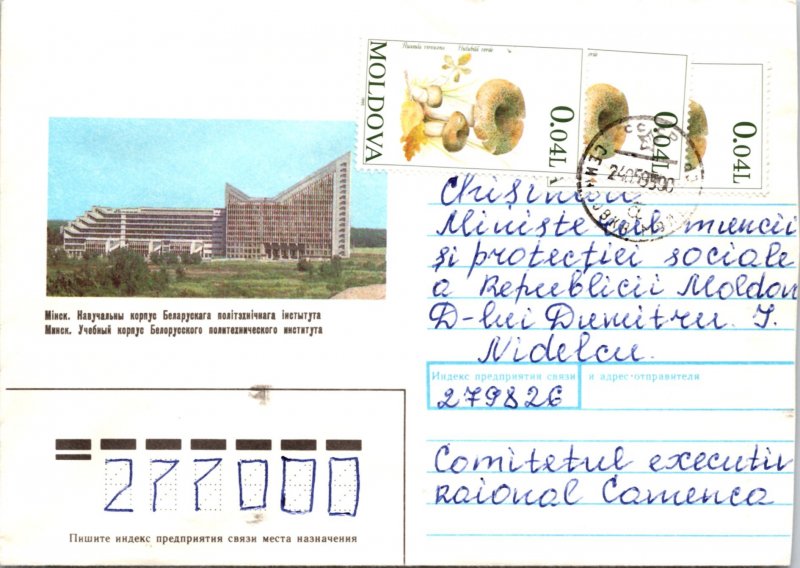 Russula virescens Hulubiță verde
MOLDOVA
0.04L
0.04L
0.04L
СССР
240595 00
Chișinău
Ministerul muncii
și protecției sociale
a Republicii Moldon
D-lui Dumitru. I.
Nidelcu.
Мінск. Навучальны корпус Беларускага політэхнічнага інстытута
Минск. Учебный корпус Белорусского политехнического института
Индекс предприятия связи и адрес отправителя
279826
Comitetul executiv
raional Camenca
277000
Пишите индекс предприятия связи места назначения